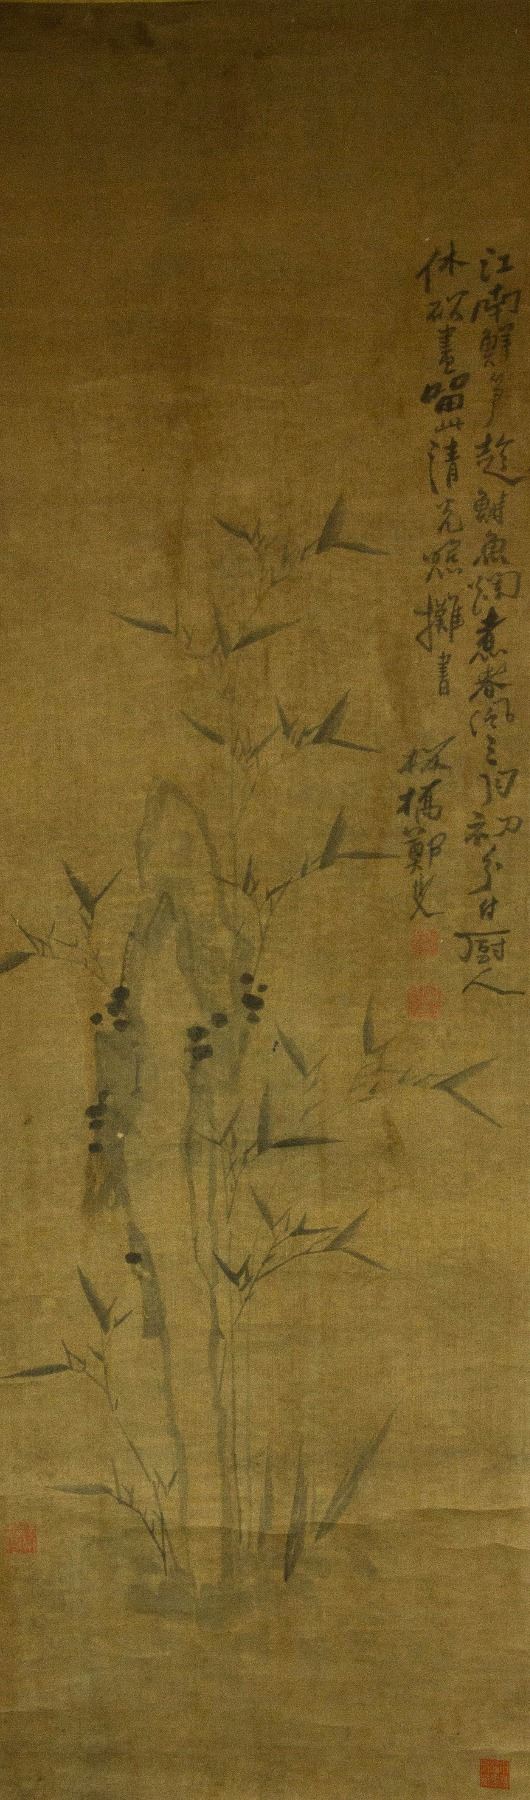 江南鮮筍趁鰣魚爛煮春風三月初分付厨人
休斫盡留此清光照攤書 板橋鄭燮